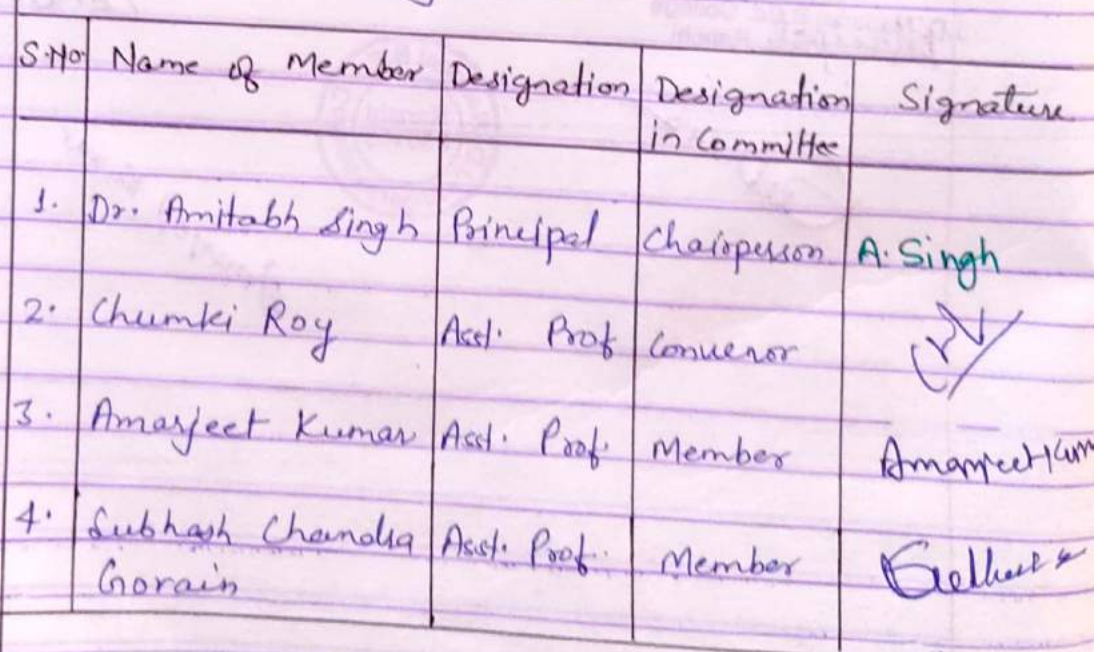 S.No. Name of Member Designation Designation in Committee Signature
1. Dr. Amitabh Singh Principal Chairperson A. Singh
2. Chumki Roy Asst. Prof Convenor
3. Amarjeet Kumar Asst. Prof. Member Amarjeet Kum
4. Subhash Chandra Gorain Asst. Prof. Member